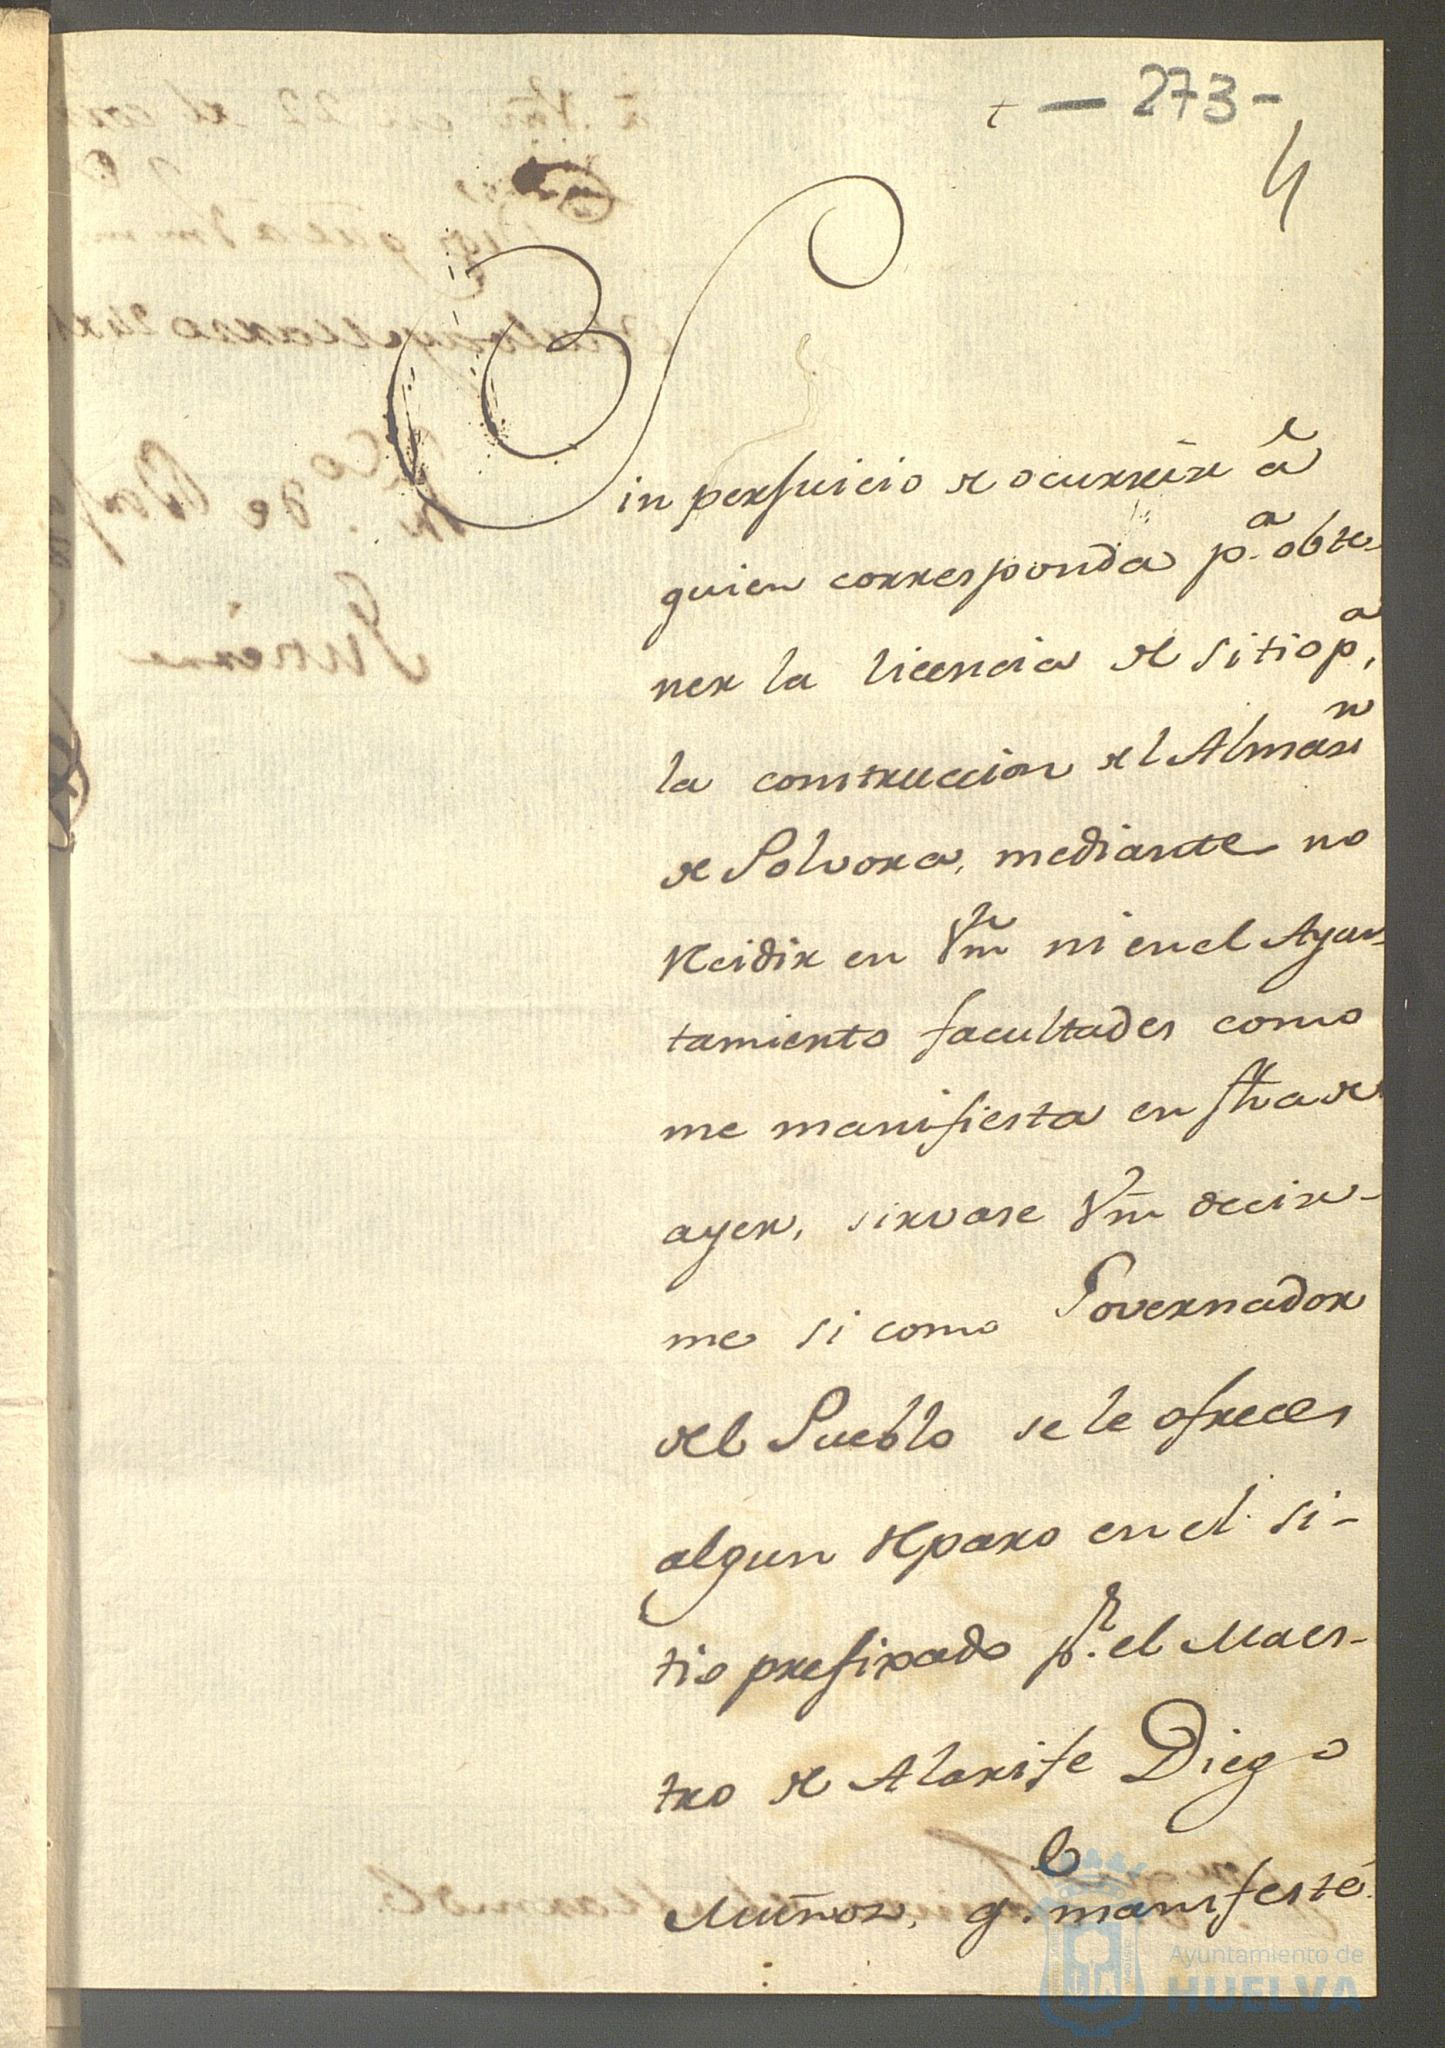 t — 273 -
4
Sin perjuicio de ocurrir â
quien corresponda p.a obte-
ner la licencia del sitio p.a
la construccion del Alman
de Polvora, mediante no
Recidir en Vm ni en el Ayun-
tamiento facultades como
me manifiesta en fha de
ayer, sirvase Vm decir-
me si como Governador
del Pueblo se le ofreces
algun reparo en el si-
tio prefixado p.r el Maes-
tro de Alarife Diego
Muñoz, q.e manifesté
Ayuntamiento de
HUELVA